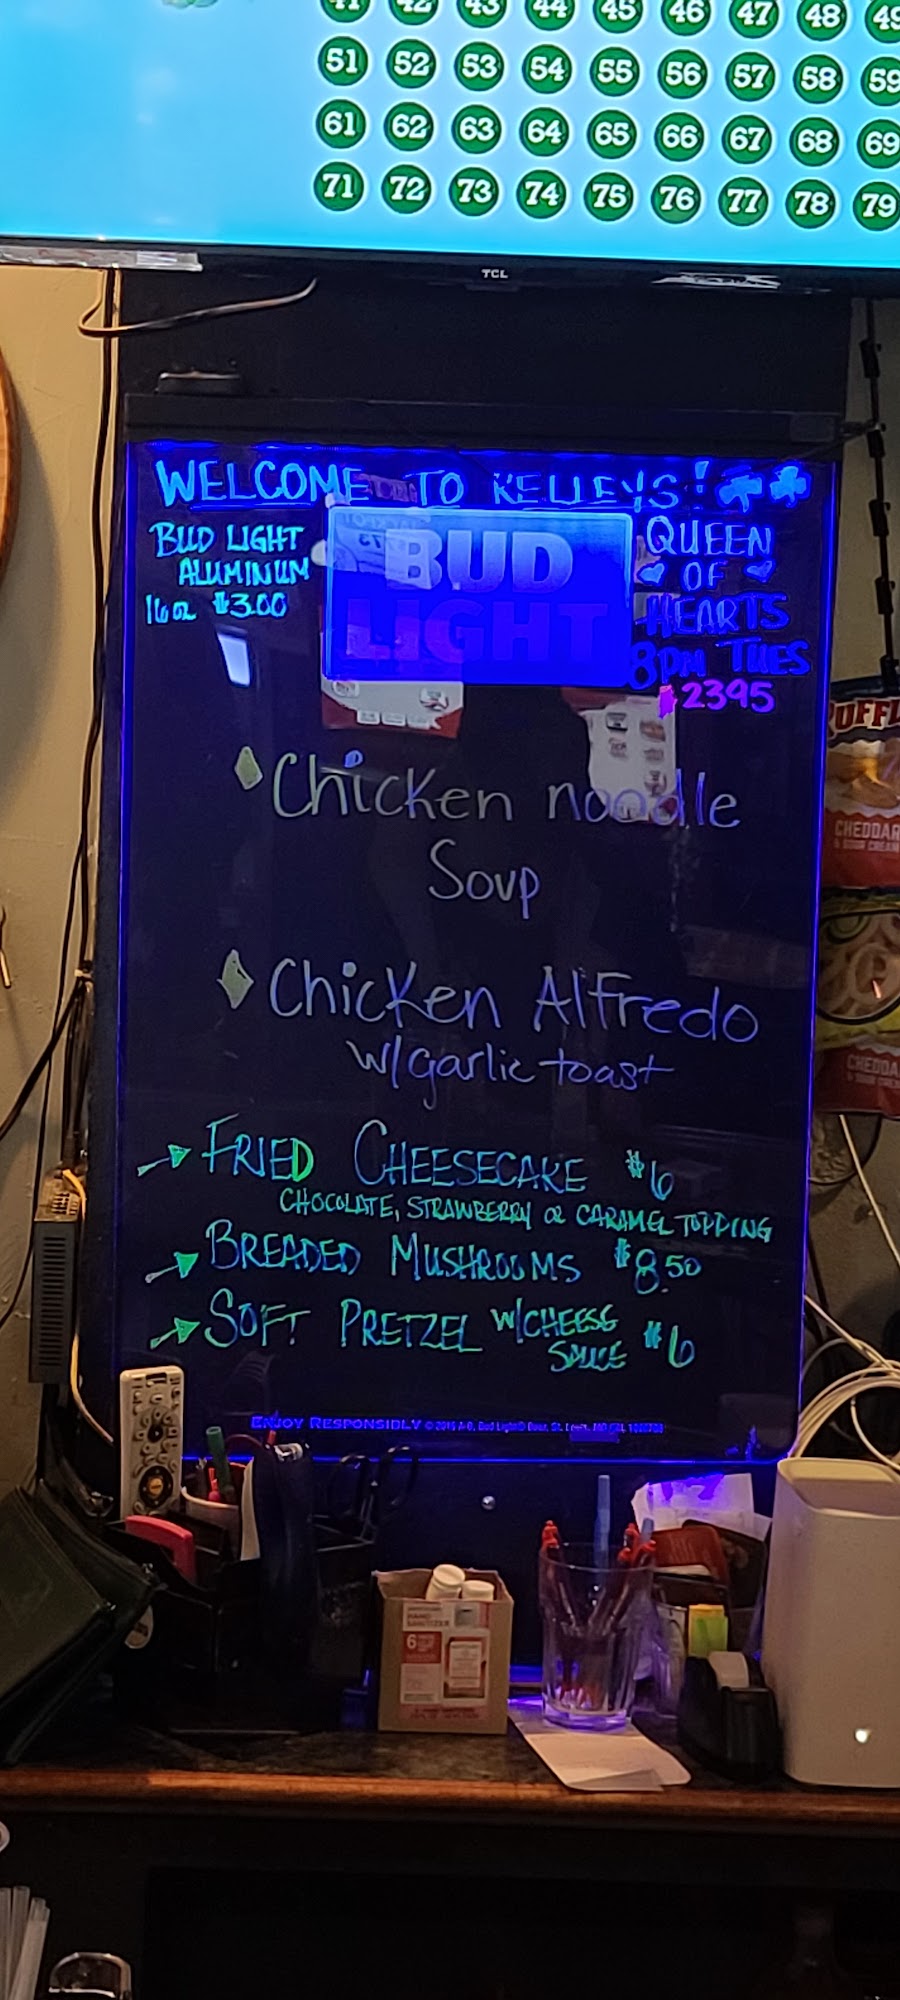 41 42 43 44 45 46 47 48 49
51 52 53 54 55 56 57 58 59
61 62 63 64 65 66 67 68 69
71 72 73 74 75 76 77 78 79
TCL
WELCOME TO KELLEYS!
BUD LIGHT
ALUMINUM
16 oz $3.00
BUD
LIGHT
QUEEN
OF
HEARTS
8PM TUES
$2395
Chicken noodle
Soup
Chicken Alfredo
w/garlic toast
FRIED CHEESECAKE $6
CHOCOLATE, STRAWBERRY OR CARAMEL TOPPING
BREADED MUSHROOMS $8.50
SOFT PRETZEL W/CHEESE
SAUCE $6
ENJOY RESPONSIBLY
RUFFL
CHEDDAR
& SOUR CREAM
CHEDDA
HAND
SANITIZER
6